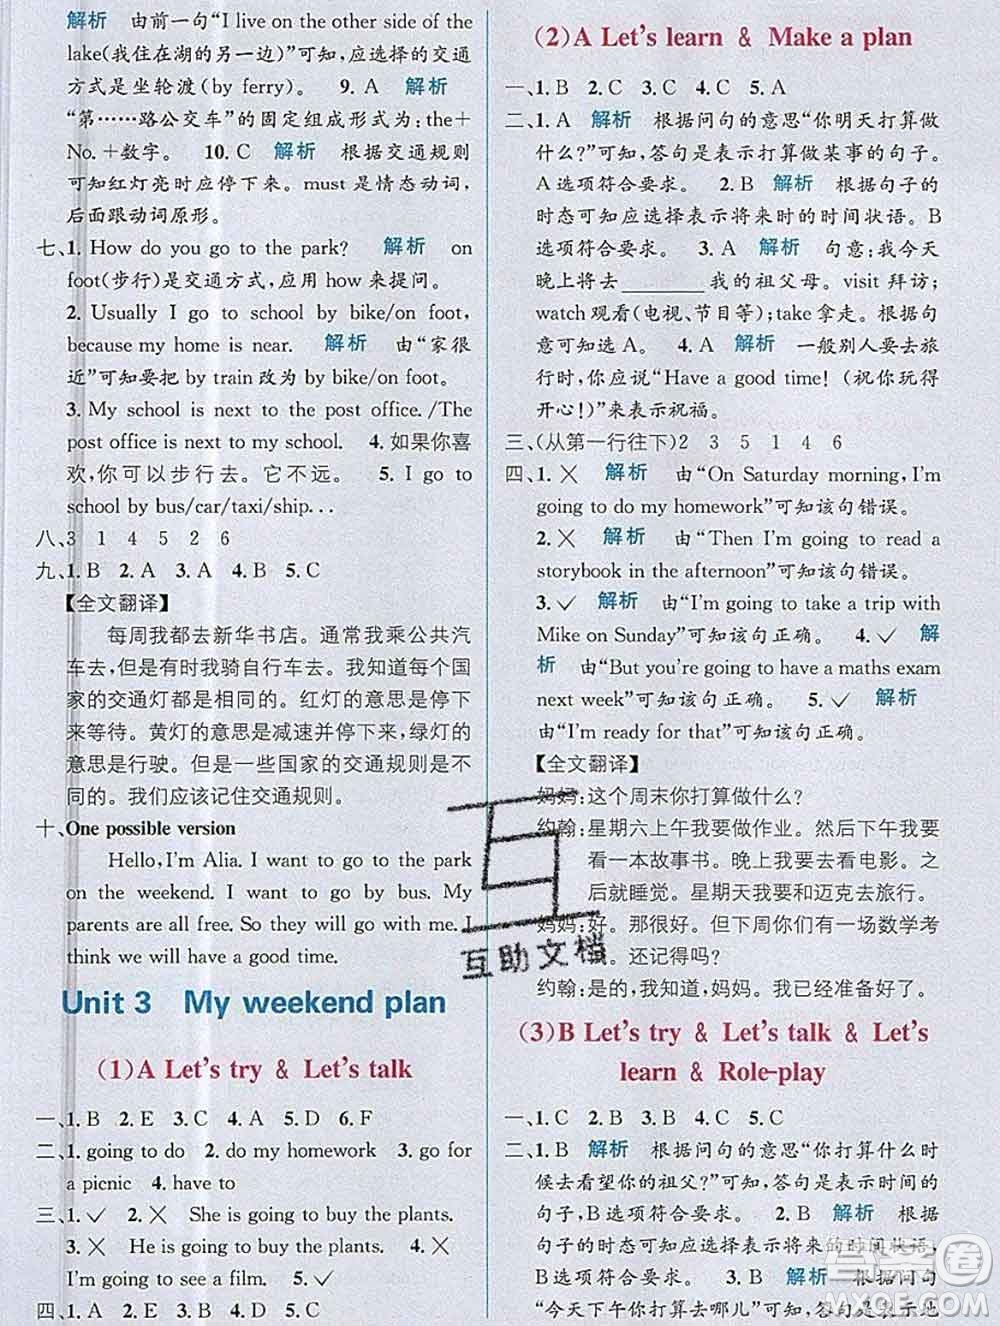 解析 由前一句“I live on the other side of the
lake(我住在湖的另一边)”可知,应选择的交通
方式是坐轮渡(by ferry)。 9. A 解析
“第……路公交车”的固定组成形式为:the＋
No.＋数字。 10. C 解析 根据交通规则
可知红灯亮时应停下来。must 是情态动词,
后面跟动词原形。
七、1. How do you go to the park? 解析 on
foot(步行)是交通方式,应用 how 来提问。
2. Usually I go to school by bike/on foot,
because my home is near. 解析 由“家很
近”可知要把 by train 改为 by bike/on foot.
3. My school is next to the post office. /The
post office is next to my school. 4. 如果你喜
欢,你可以步行去。它不远。 5. I can go to
school by bus/car/taxi/ship. . .
八、3 1 4 5 2 6
九、1. B 2. A 3. A 4. B 5. C
【全文翻译】
每周我都去新华书店。通常我乘公共汽
车去,但是有时我骑自行车去。我知道每个国
家的交通灯都是相同的。红灯的意思是停下
来等待。黄灯的意思是减速并停下来,绿灯
的意思是行驶。但是一些国家的交通规则是
不同的。我们应该记住交通规则。
十、One possible version
Hello, I'm Alia. I want to go to the park
on the weekend. I want to go by bus. My
parents are all free. So they will go with me. I
think we will have a good time.
Unit 3 My weekend plan
(1)A Let's try & Let's talk
一、1. B 2. E 3. C 4. A 5. D 6. F
二、1. going to do 2. do my homework 3. go for
a picnic 4. have to
三、1. ✓ 2. ✕ She is going to buy the plants.
3. ✕ He is going to buy the plants. 4. ✕
I'm going to see a film. 5. ✓
四、1. A 2. B 3. A 4. B 5. C
(2)A Let's learn & Make a plan
一、1. B 2. C 3. C 4. C 5. A
二、1. A 解析 根据问句的意思“你明天打算做
什么?”可知,答句是表示打算做某事的句子。
A 选项符合要求。 2. B 解析 根据句子的
时态可知应选择表示将来时的时间状语。B
选项符合要求。 3. A 解析 句意:我今天
晚上将去______我的祖父母。visit 拜访;
watch 观看(电视、节目等);take 拿走。根据句
意可知选 A。 4. A 解析 一般别人要去旅
行时,你应说“Have a good time!(祝你玩得
开心!)”来表示祝福。
三、(从第一行往下)2 3 5 1 4 6
四、1. ✕ 解析 由“On Saturday morning, I'm
going to do my homework”可知该句错误。
2. ✕ 解析 由“Then I'm going to read a
storybook in the afternoon”可知该句错误。
3. ✓ 解析 由“I'm going to take a trip with
Mike on Sunday”可知该句正确。 4. ✓ 解
析 由“But you're going to have a maths exam
next week”可知该句正确。 5. ✓ 解析
由“I'm ready for that”可知该句正确。
【全文翻译】
妈妈:这个周末你打算做什么?
约翰:星期六上午我要做作业。然后下午我要
看一本故事书。晚上我要去看电影。之
后就睡觉。星期天我要和迈克去旅行。
妈妈:好。那很好。但下周你们有一场数学考
试。还记得吗?
约翰:是的,我知道,妈妈。我已经准备好了。
(3)B Let's try & Let's talk & Let's
learn & Role-play
一、1. C 2. C 3. B 4. C 5. B
二、1. B 解析 根据问句的意思“你打算什么时
候去看望你的祖父?”可知,答句是表示时间的
句子,B 选项符合要求。 2. B 解析 根据
句子的时态可知应选择表示将来的时间状语,
B 选项符合要求。 3. A 解析 根据问句
“今天下午你打算去哪儿”可知,答句是表示地
互助文档
答案圈
MXQE.COM